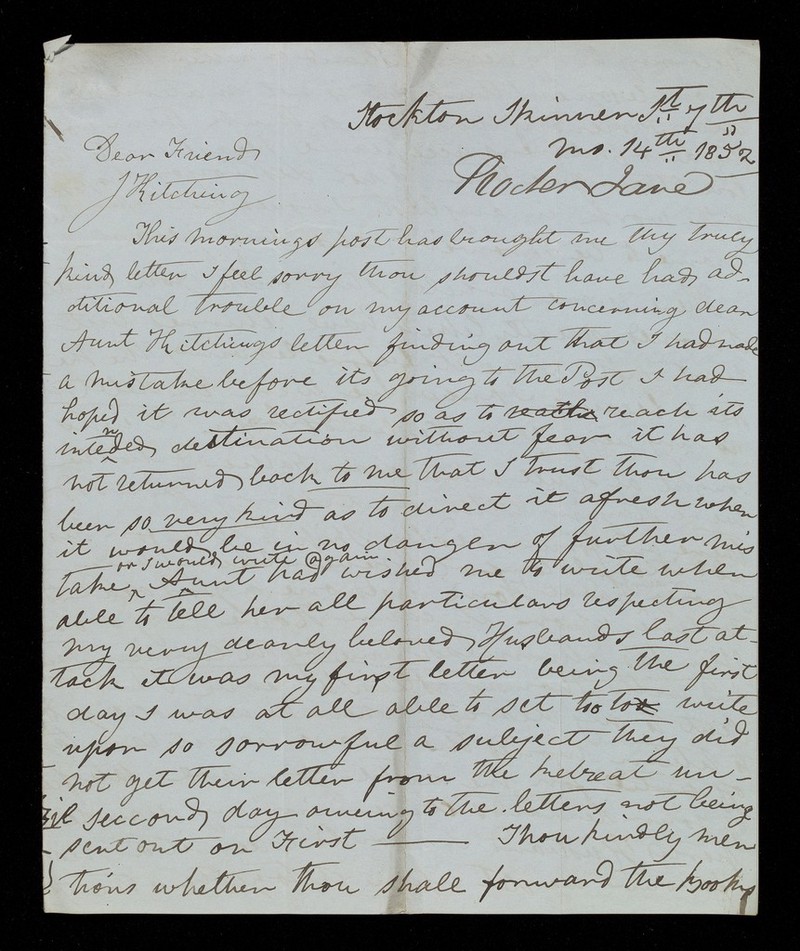 Stockton Skinner St 7th
mo. 14th 1852
Procter Jane
Dear Friend
J Kitching
This mornings post has brought me thy truly
kind letter I feel sorry thou shouldst have had ad-
ditional trouble on my account concerning dear
Aunt Kitchings letter finding out that I had made
a mistake before its going to the Post I had
hoped it was rectified so as to reach its
intended destination without fear it has
not returned back to me that I trust thou has
been so very kind as to direct it afresh when
it would be in no danger of further mis
or I would write again
take Aunt had wished me to write when
able to tell her all particulars respecting
my very dearly beloved Husbands last at-
tack it was my first letter being the first
day I was at all able to set too write
upon so sorrowful a subject they did
not get their letter from the Retreat un-
til seccond day owing to the letters not being
sent out on First — Thou kindly men
tions whether thou shall forward the books